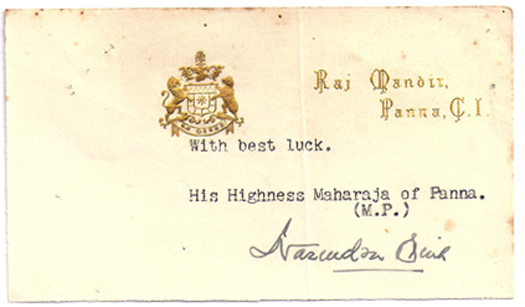 Raj Mandir,
Panna, C.I.
With best luck.
His Highness Maharaja of Panna.
(M.P.)
Narendra Singh